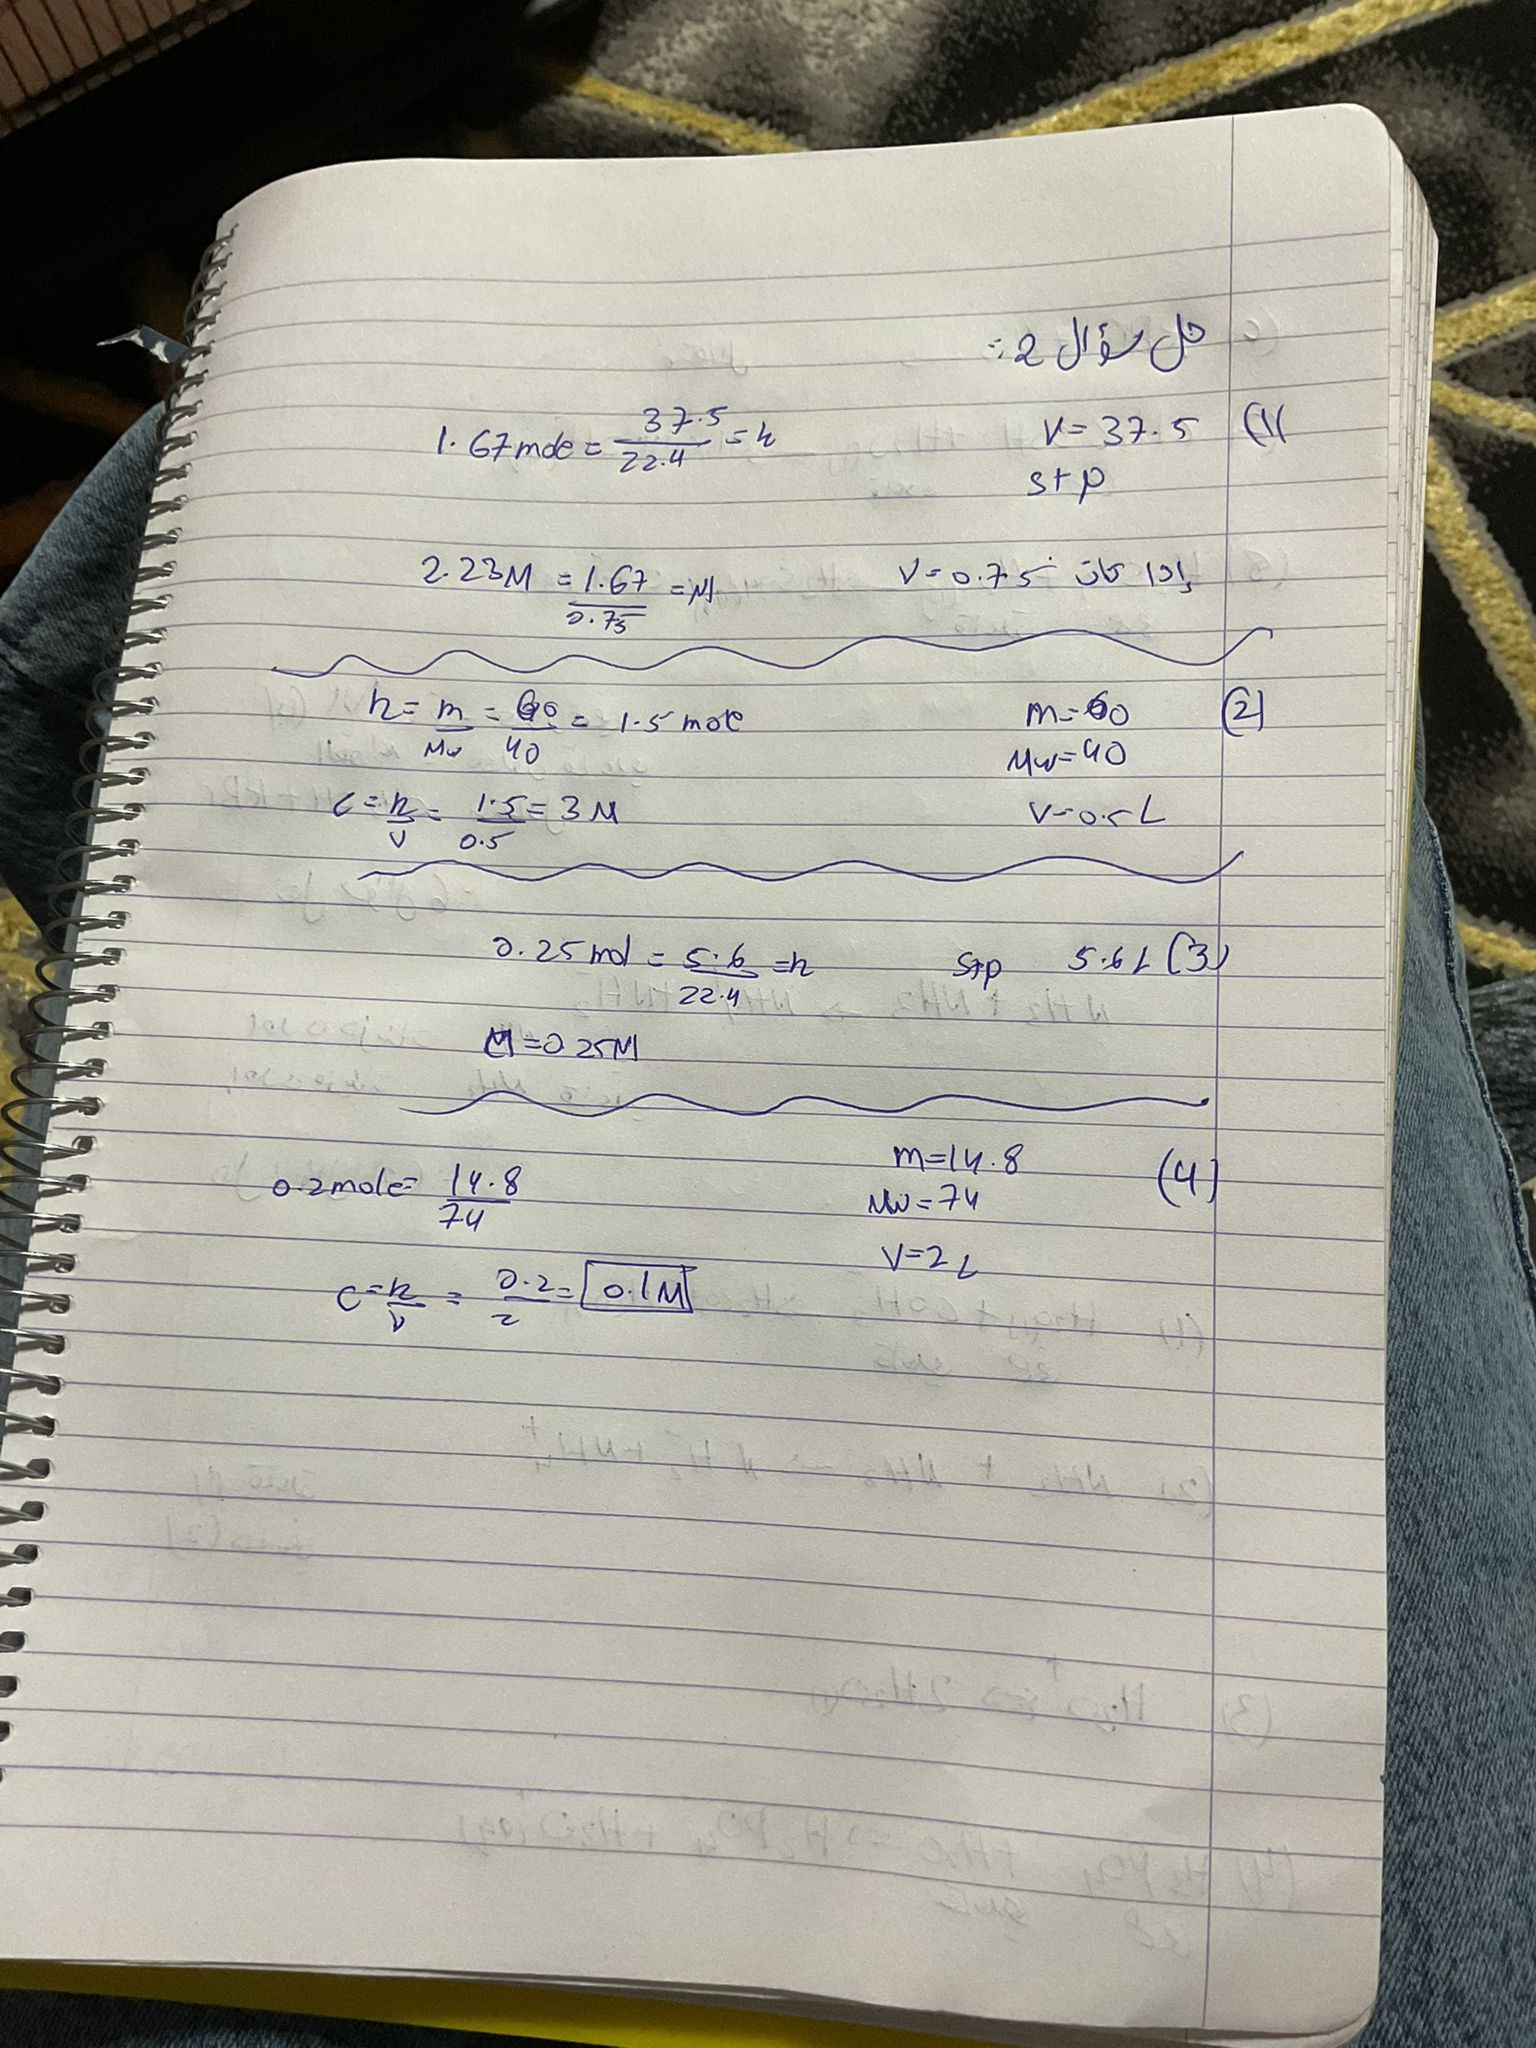 حل سؤال 2 :-
(1) V = 37.5 1.67 mole = 37.5/22.4 = n
stp
واذا كان V = 0.75 2.23M = 1.67/0.75 = M
(2) m = 60 n = m/Mw = 60/40 = 1.5 mole
Mw = 40
V = 0.5 L C = n/V = 1.5/0.5 = 3 M
(3) 5.6 L stp 0.25 mol = 5.6/22.4 = n
M = 0.25M
(4) m = 14.8 0.2 mole = 14.8/74
Mw = 74
V = 2 L
C = n/V = 0.2/2 = 0.1M